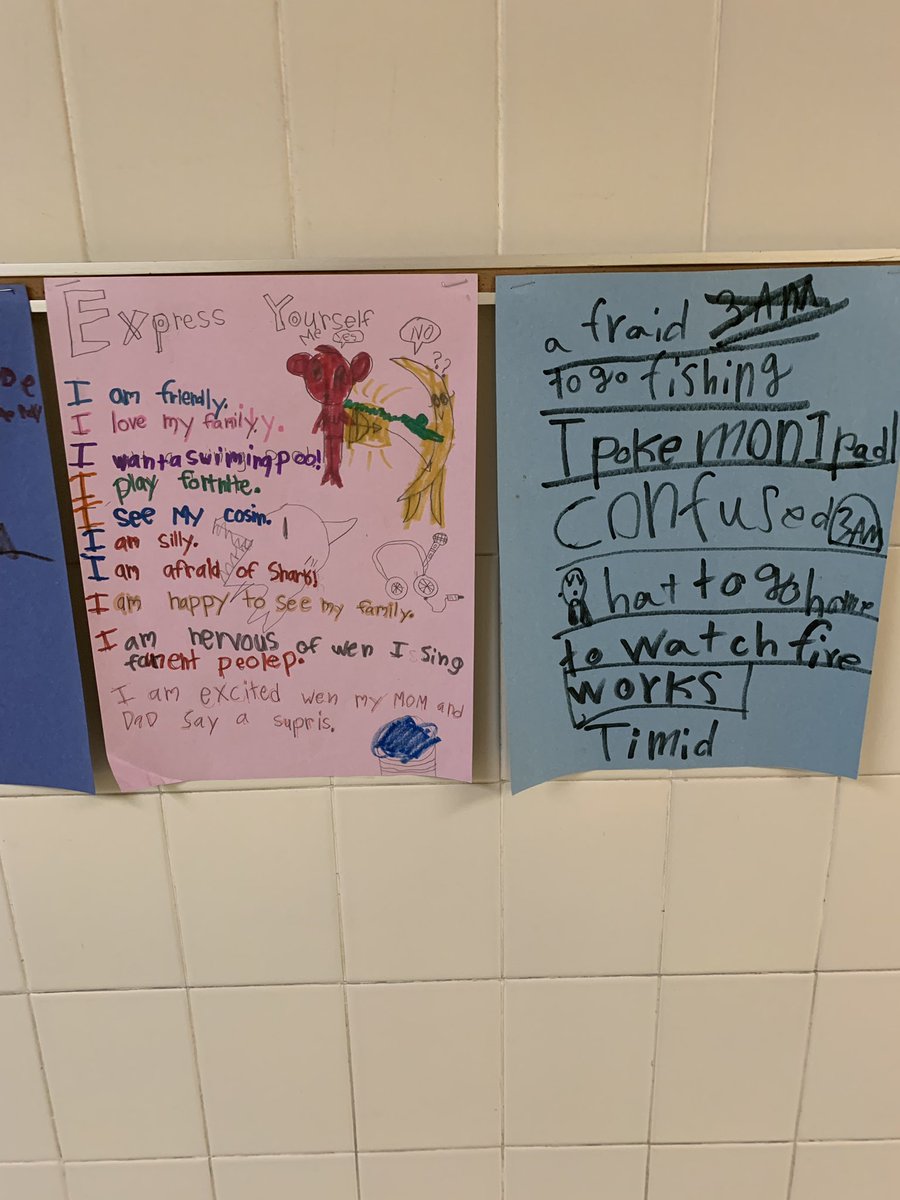 Express Yourself
Me
Yes
NO
??
I am friendly.
I love my family.y.
I want a swiming poob!
I play fortnite.
I see My cosin.
I am silly.
I am afraid of Shark!
I am happy to see my family.
I am nervous of wen I sing
peolep.
I am excited wen my MOM and
DaD say a supris.
a fraid 3AM
to go fishing
I poke mon I pad
confused 3AM
hat to go home
to watch fire
works
Timid